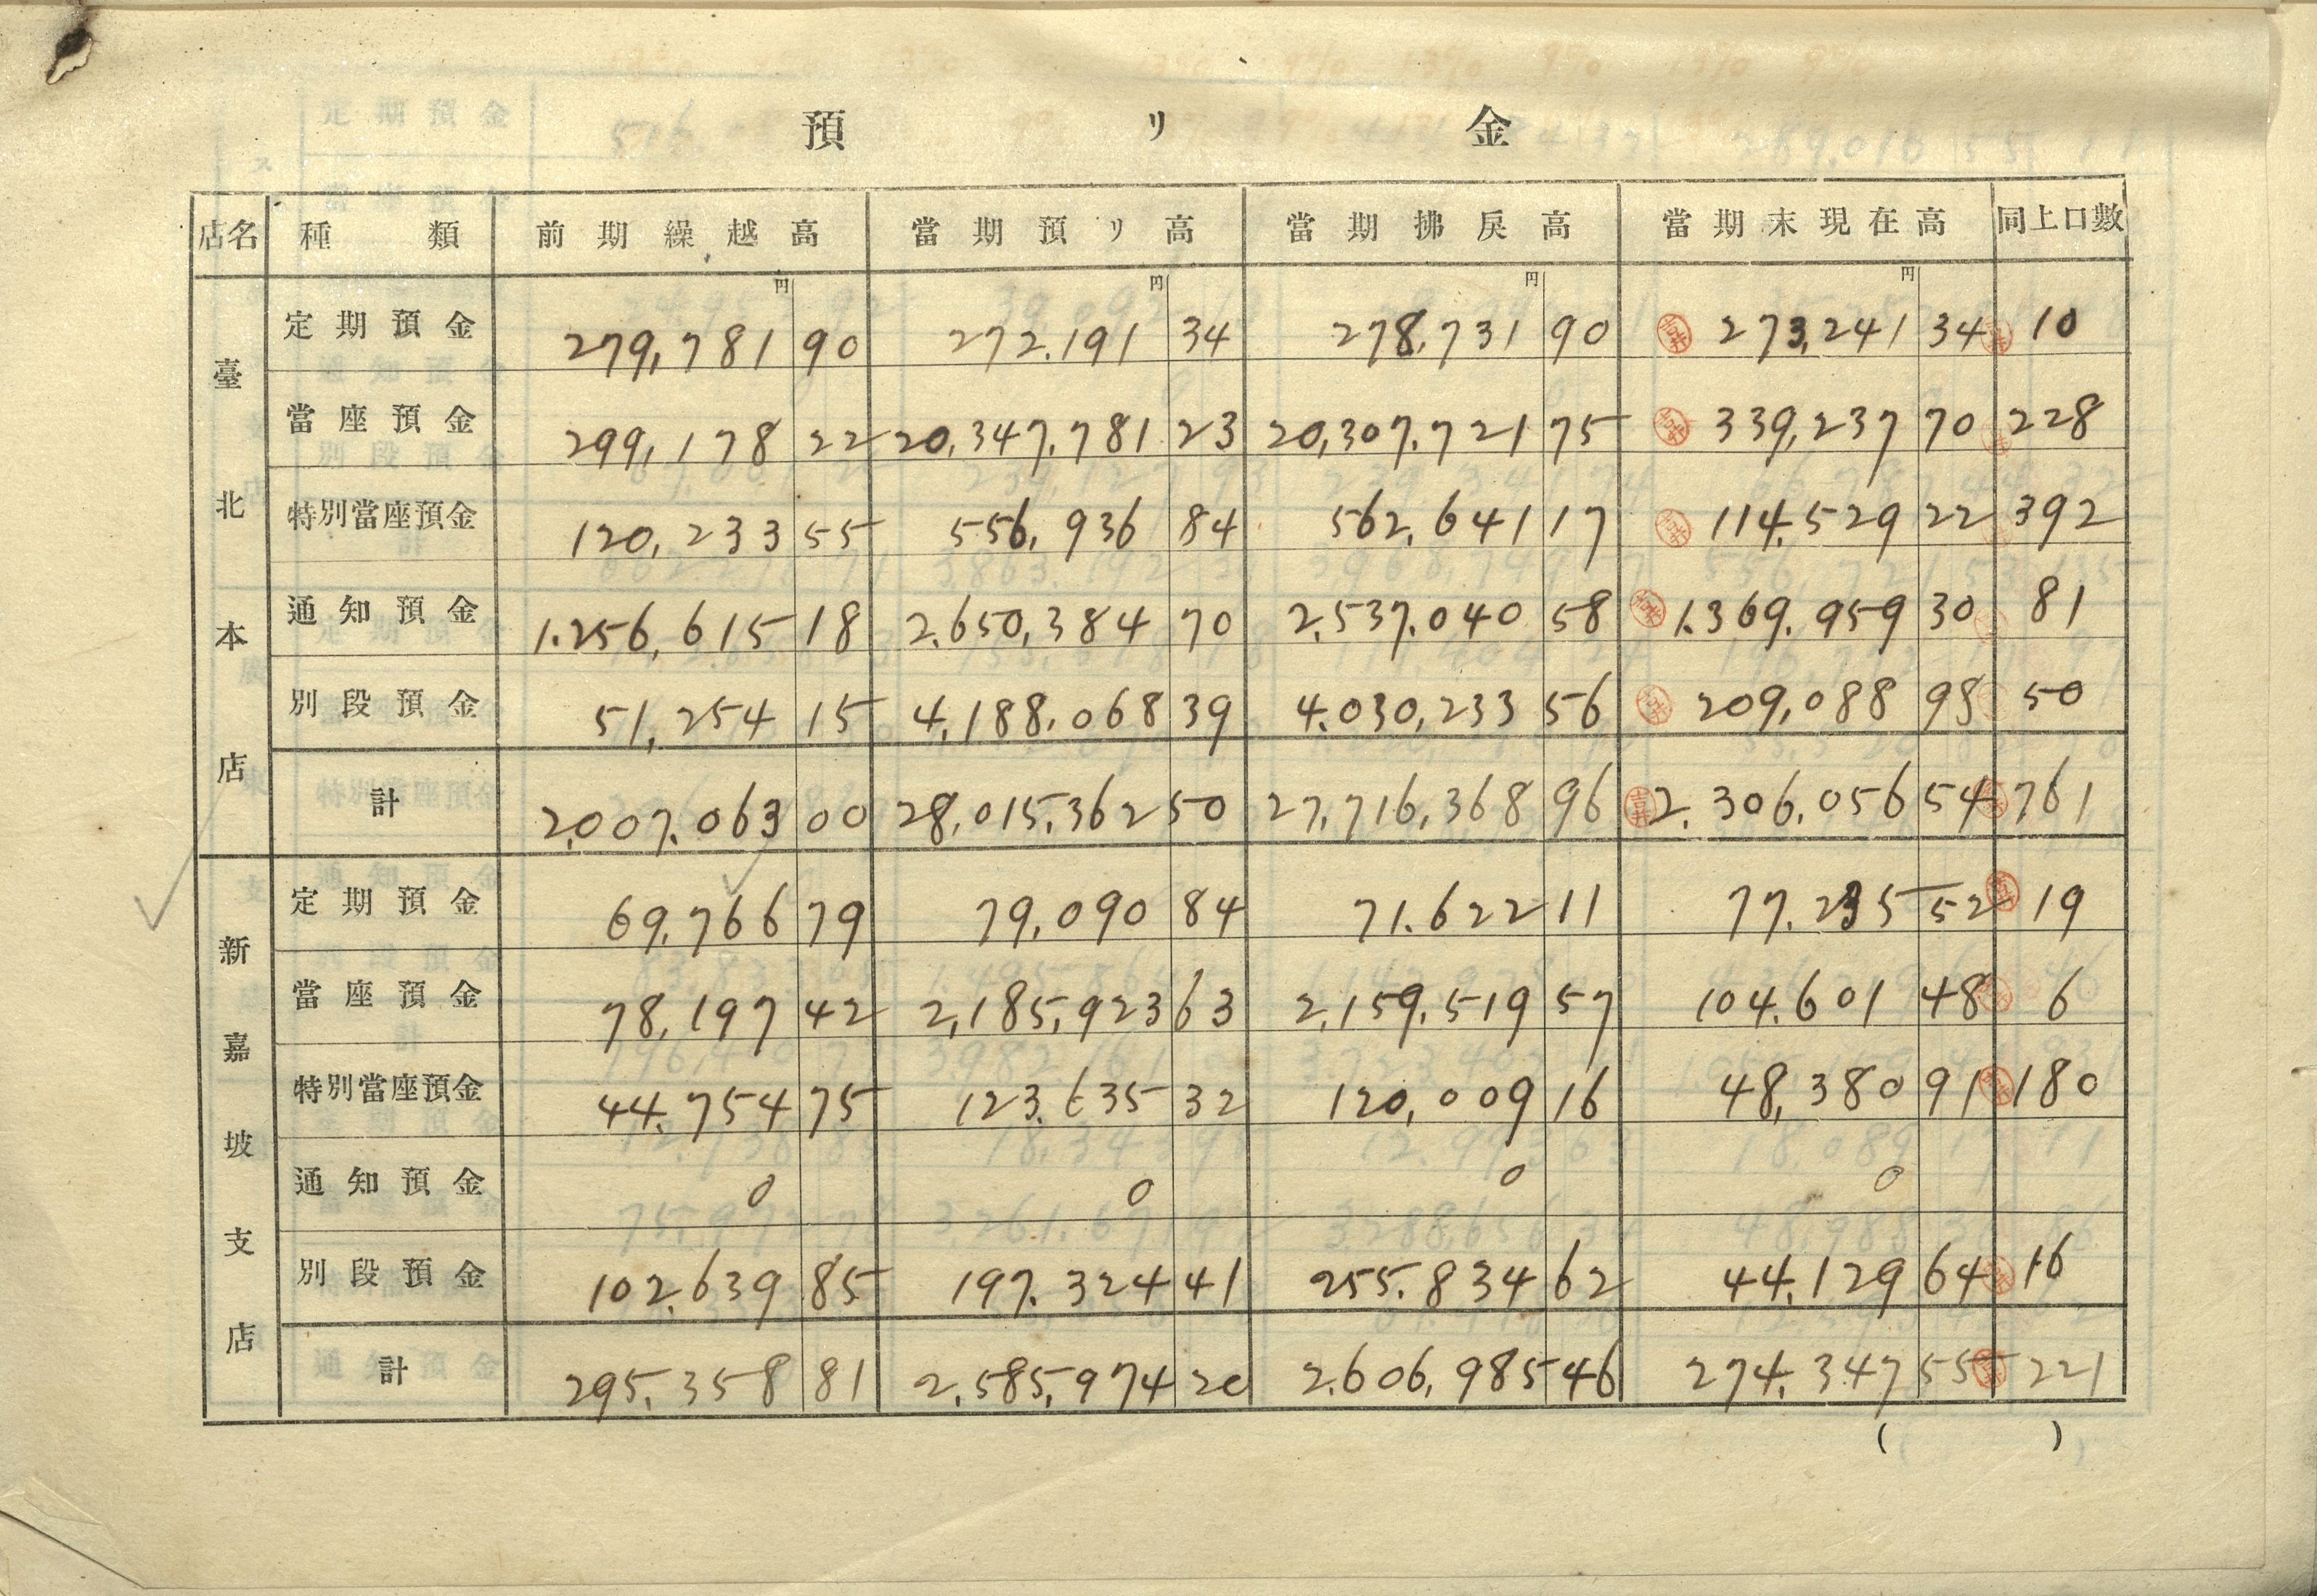 預リ金
店名 種類 前期繰越高 當期預リ高 當期拂戻高 當期末現在高 同上口數
円 円 円 円
臺北本店
定期預金 279,781 90 272.191 34 278,731 90 273,241 34 10
當座預金 299,178 22 20,347,781 23 20,307,721 75 339,237 70 228
特別當座預金 120,233 55 556,936 84 562,641 17 114,529 22 392
通知預金 1.256,615 18 2,650,384 70 2,537,040 58 1.369.959 30 81
別段預金 51,254 15 4,188,068 39 4.030,233 56 209,088 98 50
計 2,007,063 00 28,015,362 50 27,716,368 96 2.306,056 54 761
新嘉坡支店
定期預金 69,766 79 79,090 84 71.622 11 77.235 52 19
當座預金 78,197 42 2,185,923 63 2,159,519 57 104.601 48 6
特別當座預金 44.754 75 123.635 32 120,009 16 48,380 91 180
通知預金 0 0 0 0
別段預金 102.639 85 197.324 41 255.834 62 44.129 64 16
計 295.358 81 2,585,974 20 2.606,985 46 274.347 55 221
( )